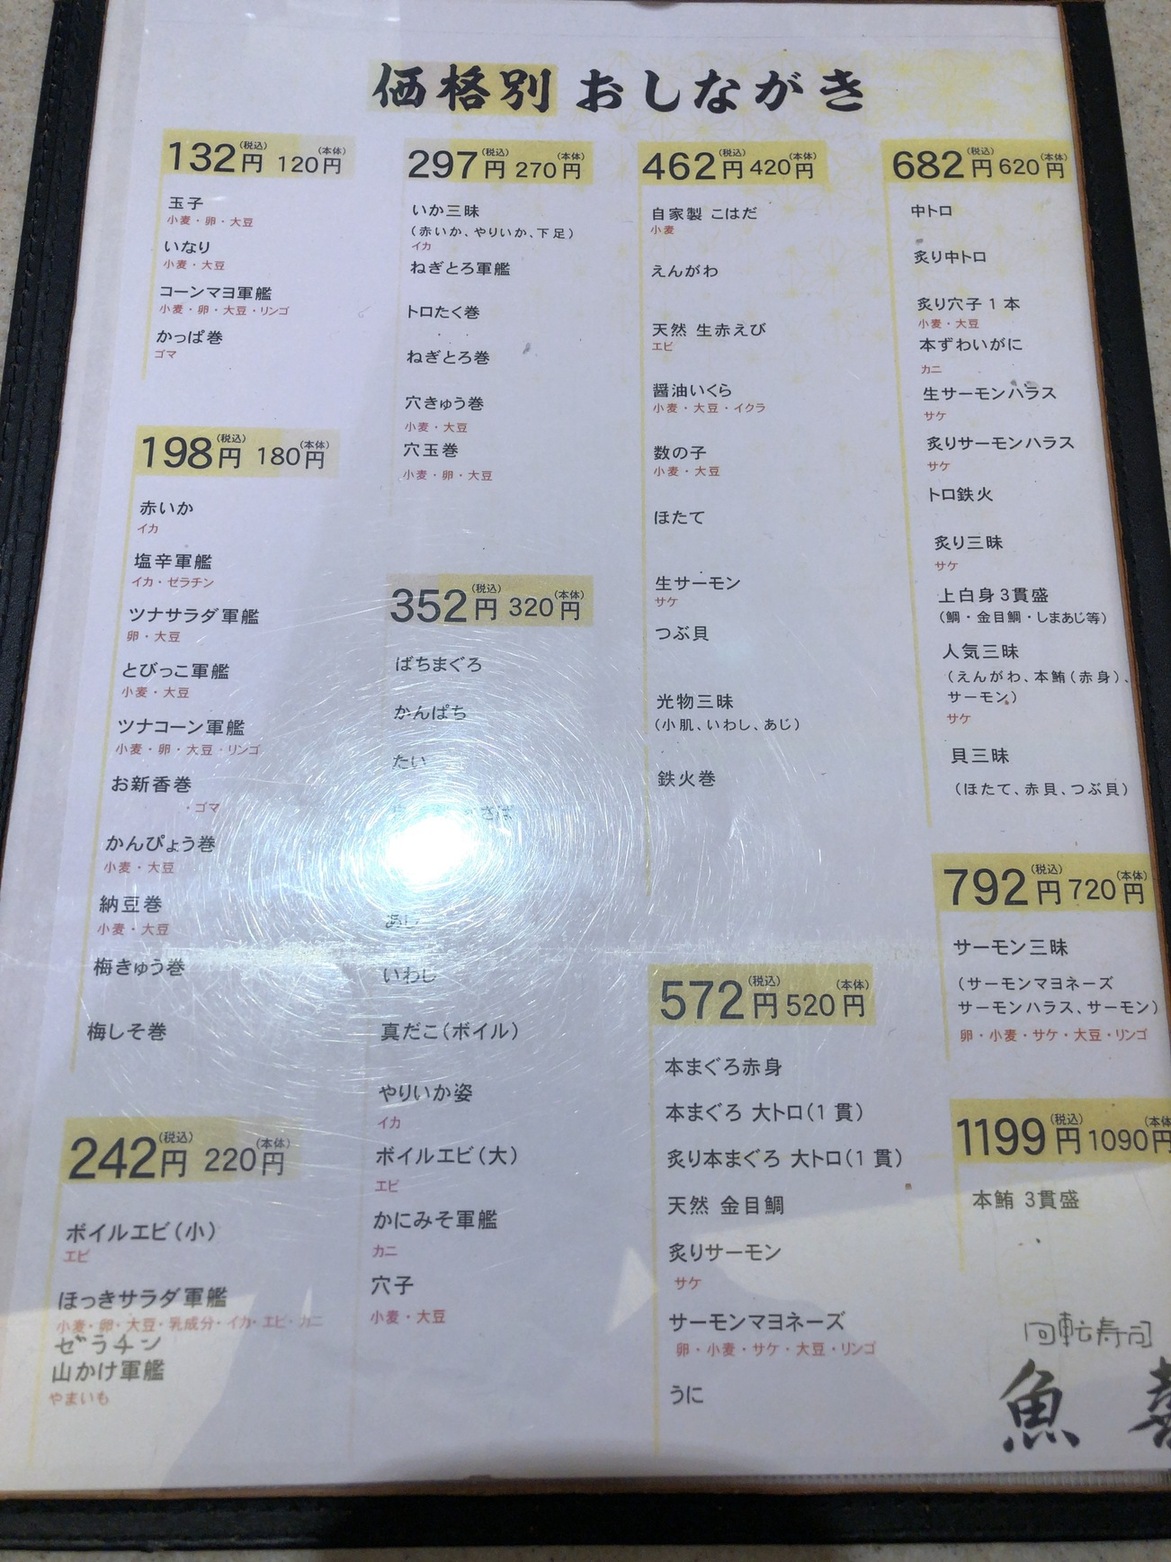 価格別 おしながき
132円(税込) 120円(本体)
玉子
小麦・卵・大豆
いなり
小麦・大豆
コーンマヨ軍艦
小麦・卵・大豆・リンゴ
かっぱ巻
ゴマ
198円(税込) 180円(本体)
赤いか
イカ
塩辛軍艦
イカ・ゼラチン
ツナサラダ軍艦
卵・大豆
とびっこ軍艦
小麦・大豆
ツナコーン軍艦
小麦・卵・大豆・リンゴ
お新香巻
・ゴマ
かんぴょう巻
小麦・大豆
納豆巻
小麦・大豆
梅きゅう巻
梅しそ巻
242円(税込) 220円(本体)
ボイルエビ(小)
エビ
ほっきサラダ軍艦
小麦・卵・大豆・乳成分・イカ・エビ・カニ
ゼラチン
山かけ軍艦
やまいも
297円(税込) 270円(本体)
いか三昧
(赤いか、やりいか、下足)
イカ
ねぎとろ軍艦
トロたく巻
ねぎとろ巻
穴きゅう巻
小麦・大豆
穴玉巻
小麦・卵・大豆
352円(税込) 320円(本体)
ばちまぐろ
かんぱち
たい
あじ
いわし
真だこ(ボイル)
やりいか姿
イカ
ボイルエビ(大)
エビ
かにみそ軍艦
カニ
穴子
小麦・大豆
462円(税込) 420円(本体)
自家製 こはだ
小麦
えんがわ
天然 生赤えび
エビ
醤油いくら
小麦・大豆・イクラ
数の子
小麦・大豆
ほたて
生サーモン
サケ
つぶ貝
光物三昧
(小肌、いわし、あじ)
鉄火巻
572円(税込) 520円(本体)
本まぐろ赤身
本まぐろ 大トロ(1貫)
炙り本まぐろ 大トロ(1貫)
天然 金目鯛
炙りサーモン
サケ
サーモンマヨネーズ
卵・小麦・サケ・大豆・リンゴ
うに
682円(税込) 620円(本体)
中トロ
炙り中トロ
炙り穴子1本
小麦・大豆
本ずわいがに
カニ
生サーモンハラス
サケ
炙りサーモンハラス
サケ
トロ鉄火
炙り三昧
サケ
上白身3貫盛
(鯛・金目鯛・しまあじ等)
人気三昧
(えんがわ、本鮪(赤身)、
サーモン)
サケ
貝三昧
(ほたて、赤貝、つぶ貝)
792円(税込) 720円(本体)
サーモン三昧
(サーモンマヨネーズ
サーモンハラス、サーモン)
卵・小麦・サケ・大豆・リンゴ
1199円(税込) 1090円(本体)
本鮪 3貫盛
回転寿司
魚喜